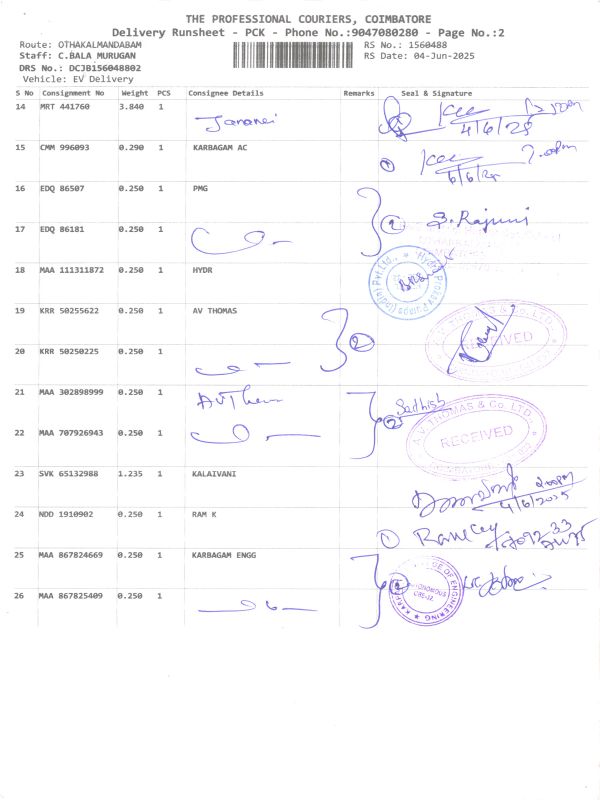 THE PROFESSIONAL COURIERS, COIMBATORE
Delivery Runsheet - PCK - Phone No.:9047080280 - Page No.:2
Route: OTHAKALMANDABAM RS No.: 1560488
Staff: C.BALA MURUGAN RS Date: 04-Jun-2025
DRS No.: DCJB156048802
Vehicle: EV Delivery
S No Consignment No Weight PCS Consignee Details Remarks Seal & Signature
14 MRT 441760 3.840 1
4/6/25
15 CMM 996093 0.290 1 KARBAGAM AC
16 EDQ 86507 0.250 1 PMG
2 S.Rajuni
17 EDQ 86181 0.250 1
18 MAA 111311872 0.250 1 HYDR
19 KRR 50255622 0.250 1 AV THOMAS
2 RECEIVED
20 KRR 50250225 0.250 1
21 MAA 302898999 0.250 1 Sadhish
2 A.V. THOMAS & Co. LTD.
22 MAA 707926943 0.250 1 RECEIVED
23 SVK 65132988 1.235 1 KALAIVANI
4/6/2025
24 NDD 1910902 0.250 1 RAM K
25 MAA 867824669 0.250 1 KARBAGAM ENGG
GE OF ENGINEERING
AUTONOMOUS
26 MAA 867825409 0.250 1